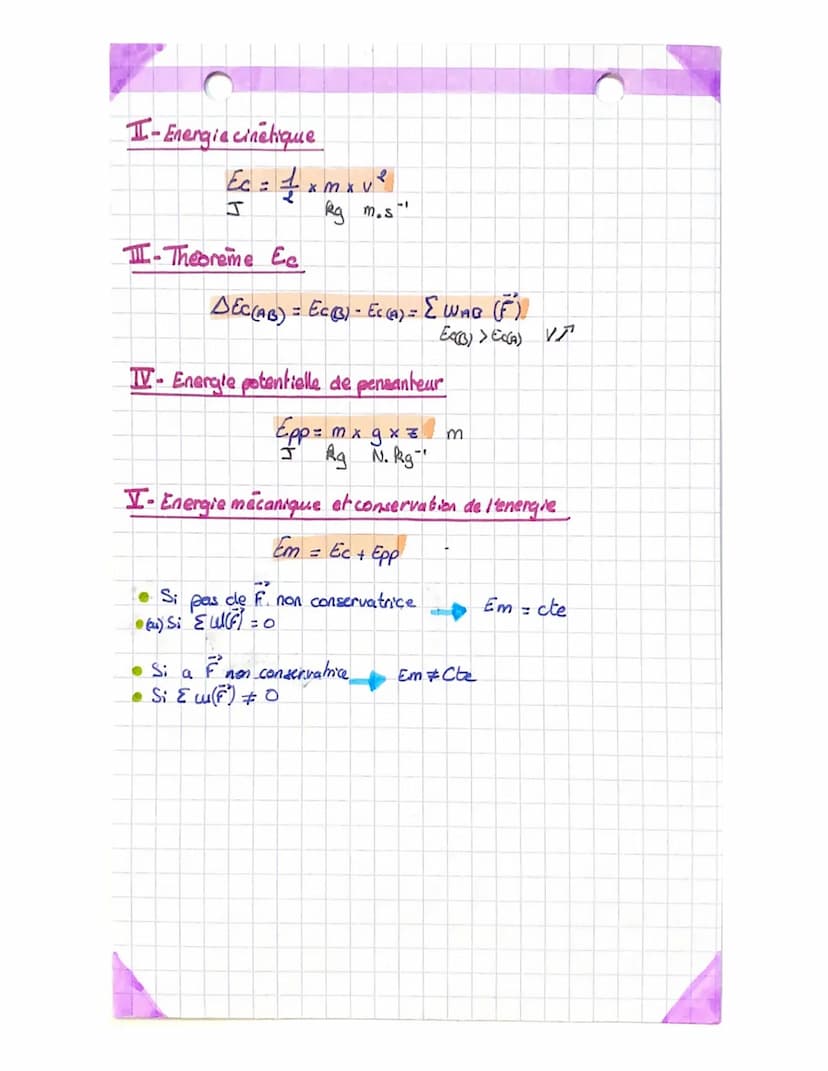 II - Energie cinétique
Ec = 1/2 x m x v²
J kg m.s⁻¹
III - Théorème Ec
ΔEc(AB) = Ec(B) - Ec(A) = Σ WAB (F⃗)
Ec(B) > Ec(A) V↗
IV - Energie potentielle de pensanteur
Epp = m x g x z m
J kg N.kg⁻¹
V - Energie mécanique et conservation de l'énergie
Em = Ec + Epp
• Si pas de F⃗. non conservatrice → Em = cte
• (ou) Si Σ W(F⃗) = 0
• Si a F⃗ non conservatrice → Em ≠ Cte
• Si Σ W(F⃗) ≠ 0